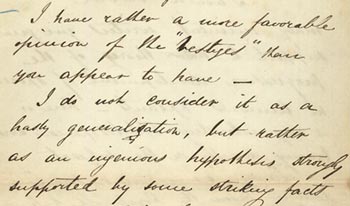 I have rather a more favorable
opinion of the "Vestiges" than
you appear to have —
I do not consider it as a
hasty generalization, but rather
as an ingenious hypothesis strongly
supported by some striking facts